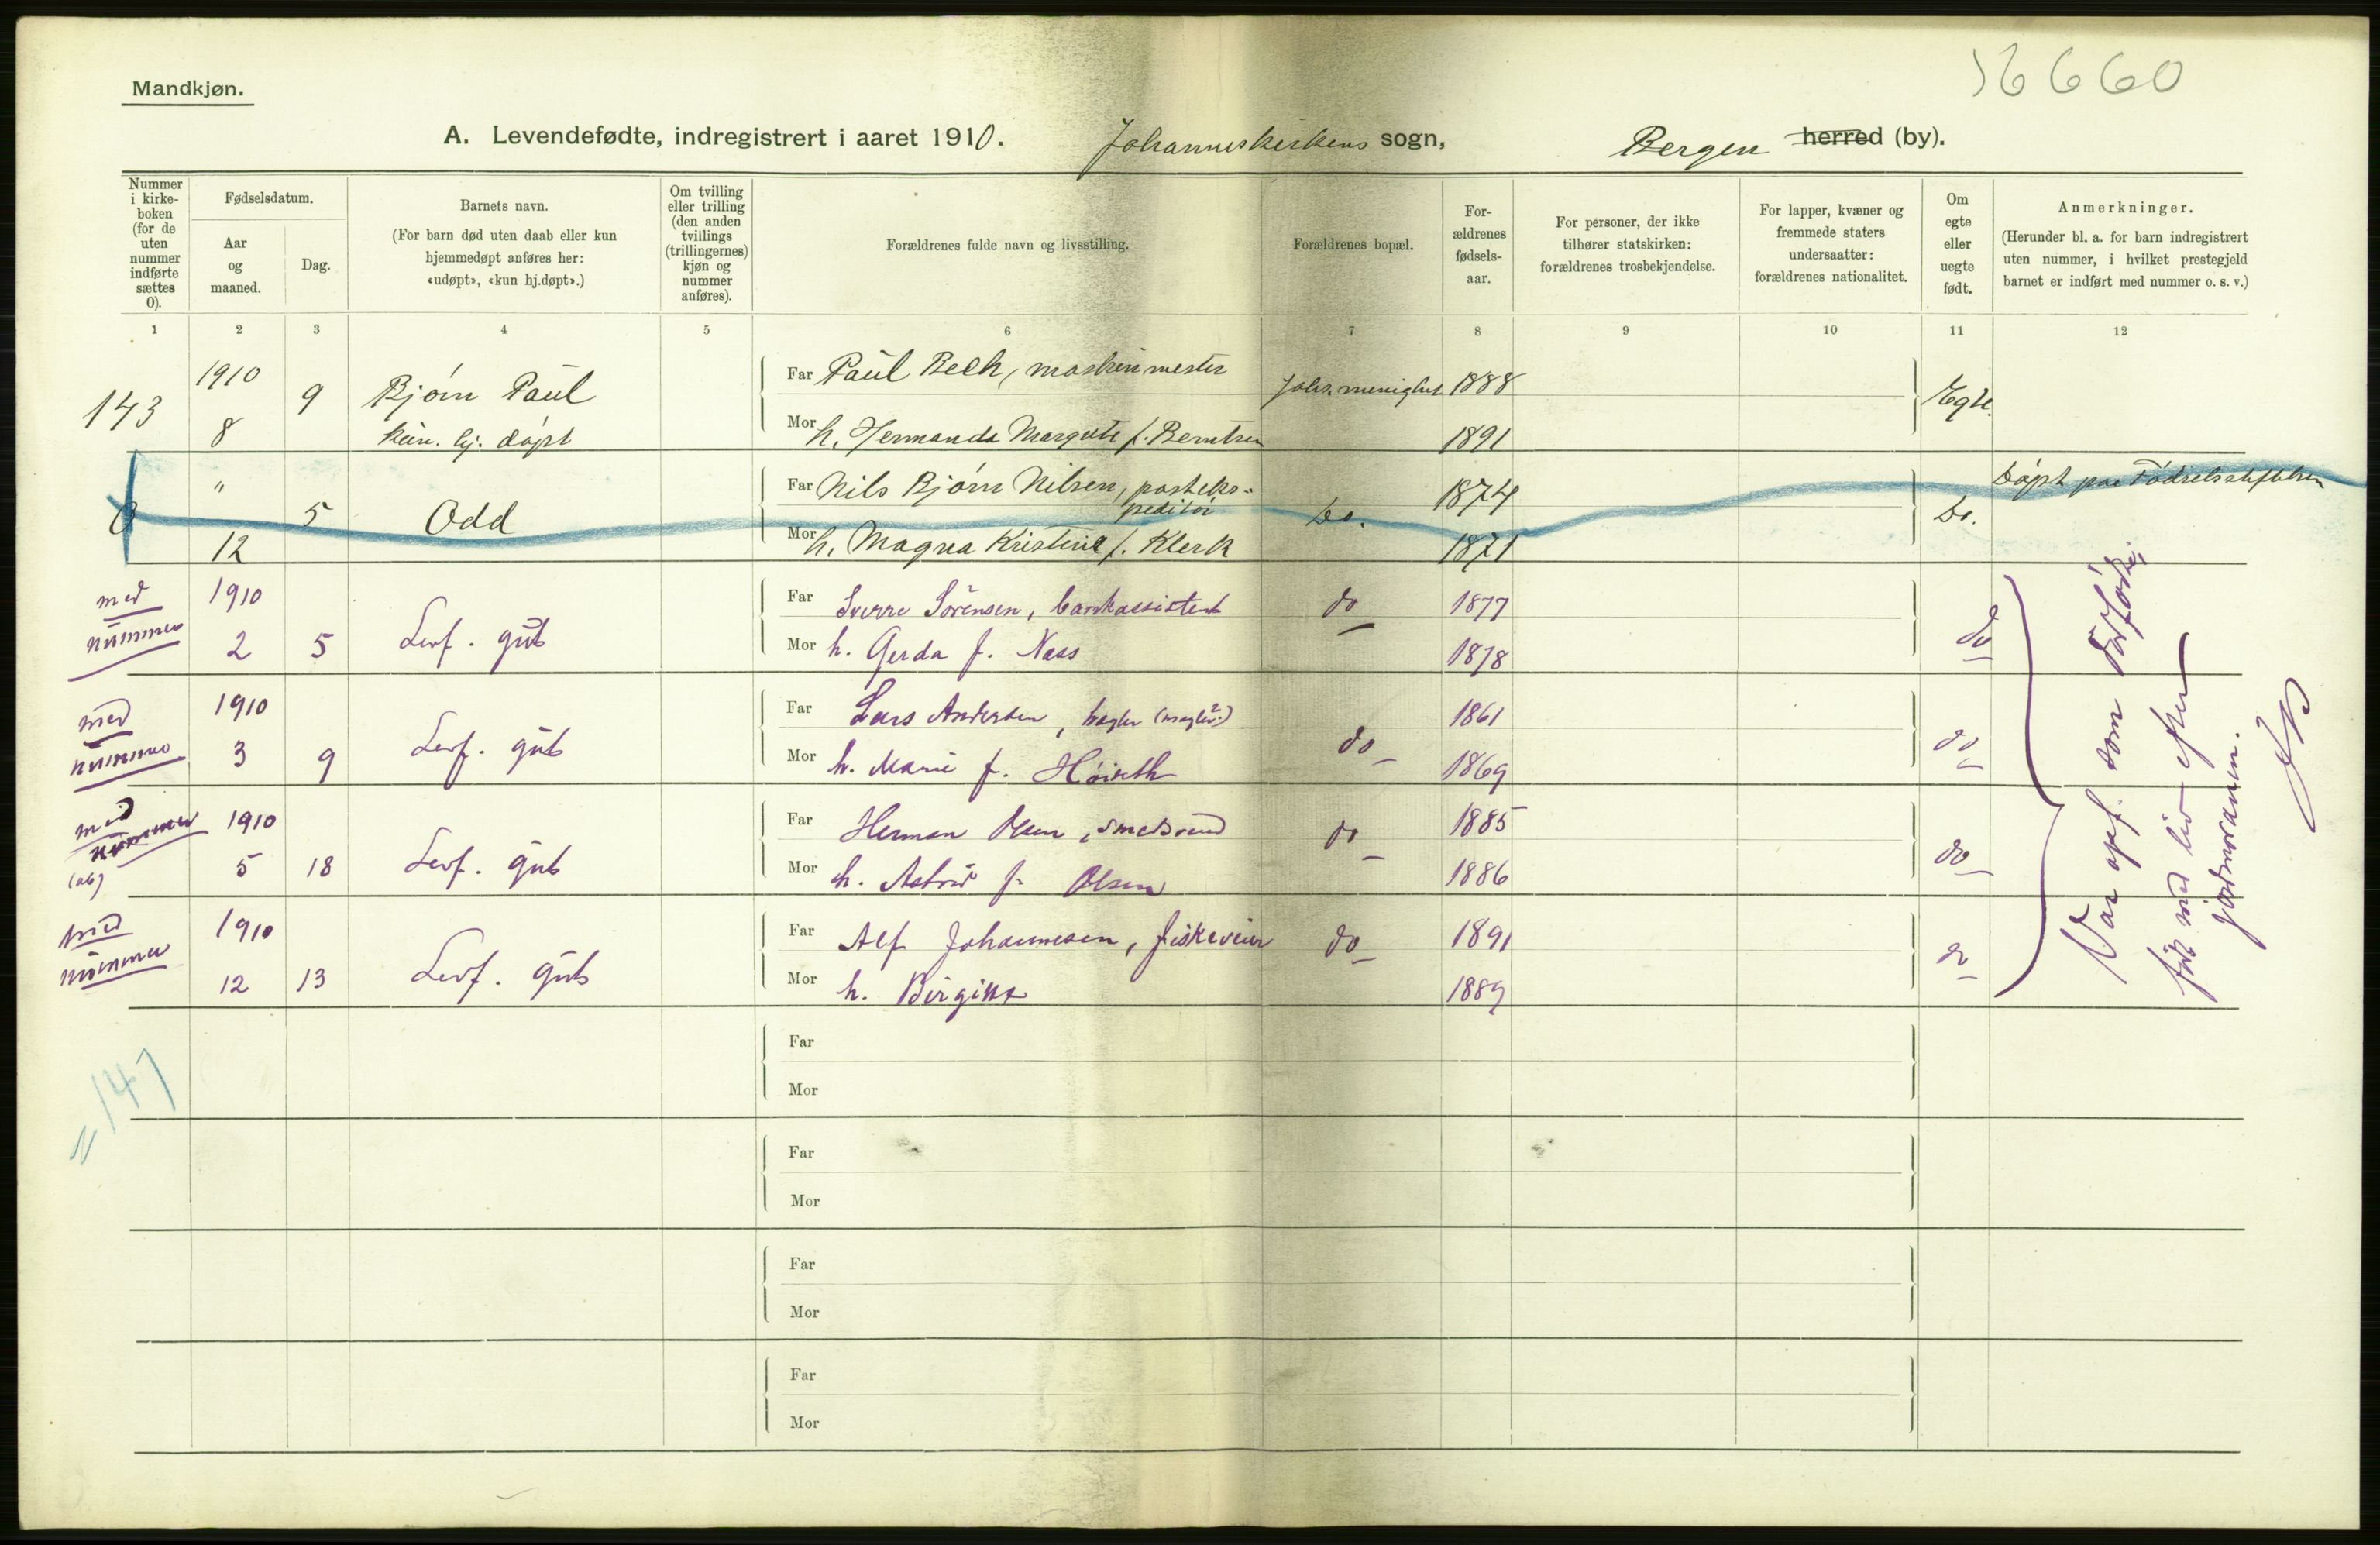 16660
Mandkjøn.
A. Levendefødte, indregistrert i aaret 1910. Johanneskirkens sogn, Bergen herred (by).
Nummer
i kirke-
boken
(for de
uten
nummer
indførte
sættes
0).
Fødselsdatum.
Aar
og
maaned.
Dag.
Barnets navn.
(For barn død uten daab eller kun
hjemmedøpt anføres her:
«udøpt», «kun hj.døpt».)
Om tvilling
eller trilling
(den anden
tvillings
(trillingernes)
kjøn og
nummer
anføres).
Forældrenes fulde navn og livsstilling.
Forældrenes bopæl.
For-
ældrenes
fødsels-
aar.
For personer, der ikke
tilhører statskirken:
forældrenes trosbekjendelse.
For lapper, kvæner og
fremmede staters
undersaatter:
forældrenes nationalitet.
Om
egte
eller
uegte
født.
Anmerkninger.
(Herunder bl. a. for barn indregistrert
uten nummer, i hvilket prestegjeld
barnet er indført med nummer o. s. v.)
1 2 3 4 5 6 7 8 9 10 11 12
143 1910 9 Bjørn Paul Far Paul Bech, maskinmester Johs. menighet 1888 Egte.
8 kun. hj. døpt Mor h. Hermanda Margrete f. Berntsen 1891
0 " 5 Odd Far Nils Bjørn Nilsen, posteks-
peditør do. 1874 do. Døpt paa Fødselsstiftelsen
12 Mor h. Magna Kristine f. Klerk 1871
med
nummer 1910 Far Sverre Sörensen, bankassistent do 1877 do
2 5 Levf. gut Mor h. Gerda f. Næss 1878
med
nummer 1910 Far Lars Andersen, (mægler?) do 1861 do
3 9 Levf. gut Mor h. Marie f. 1869
med
nummer
(ab) 1910 Far Herman Olsen, smedsvend do 1885 do
5 18 Levf. gut Mor h. Astrid f. Olsen 1886
med
nummer 1910 Far Alf Johannesen, fiskeveier do 1891 do
12 13 Levf. gut Mor h. Birgitta 1889
Var opf. som dødfødt,
født med liv efter
jordmoranm.
147
Far
Mor
Far
Mor
Far
Mor
Far
Mor